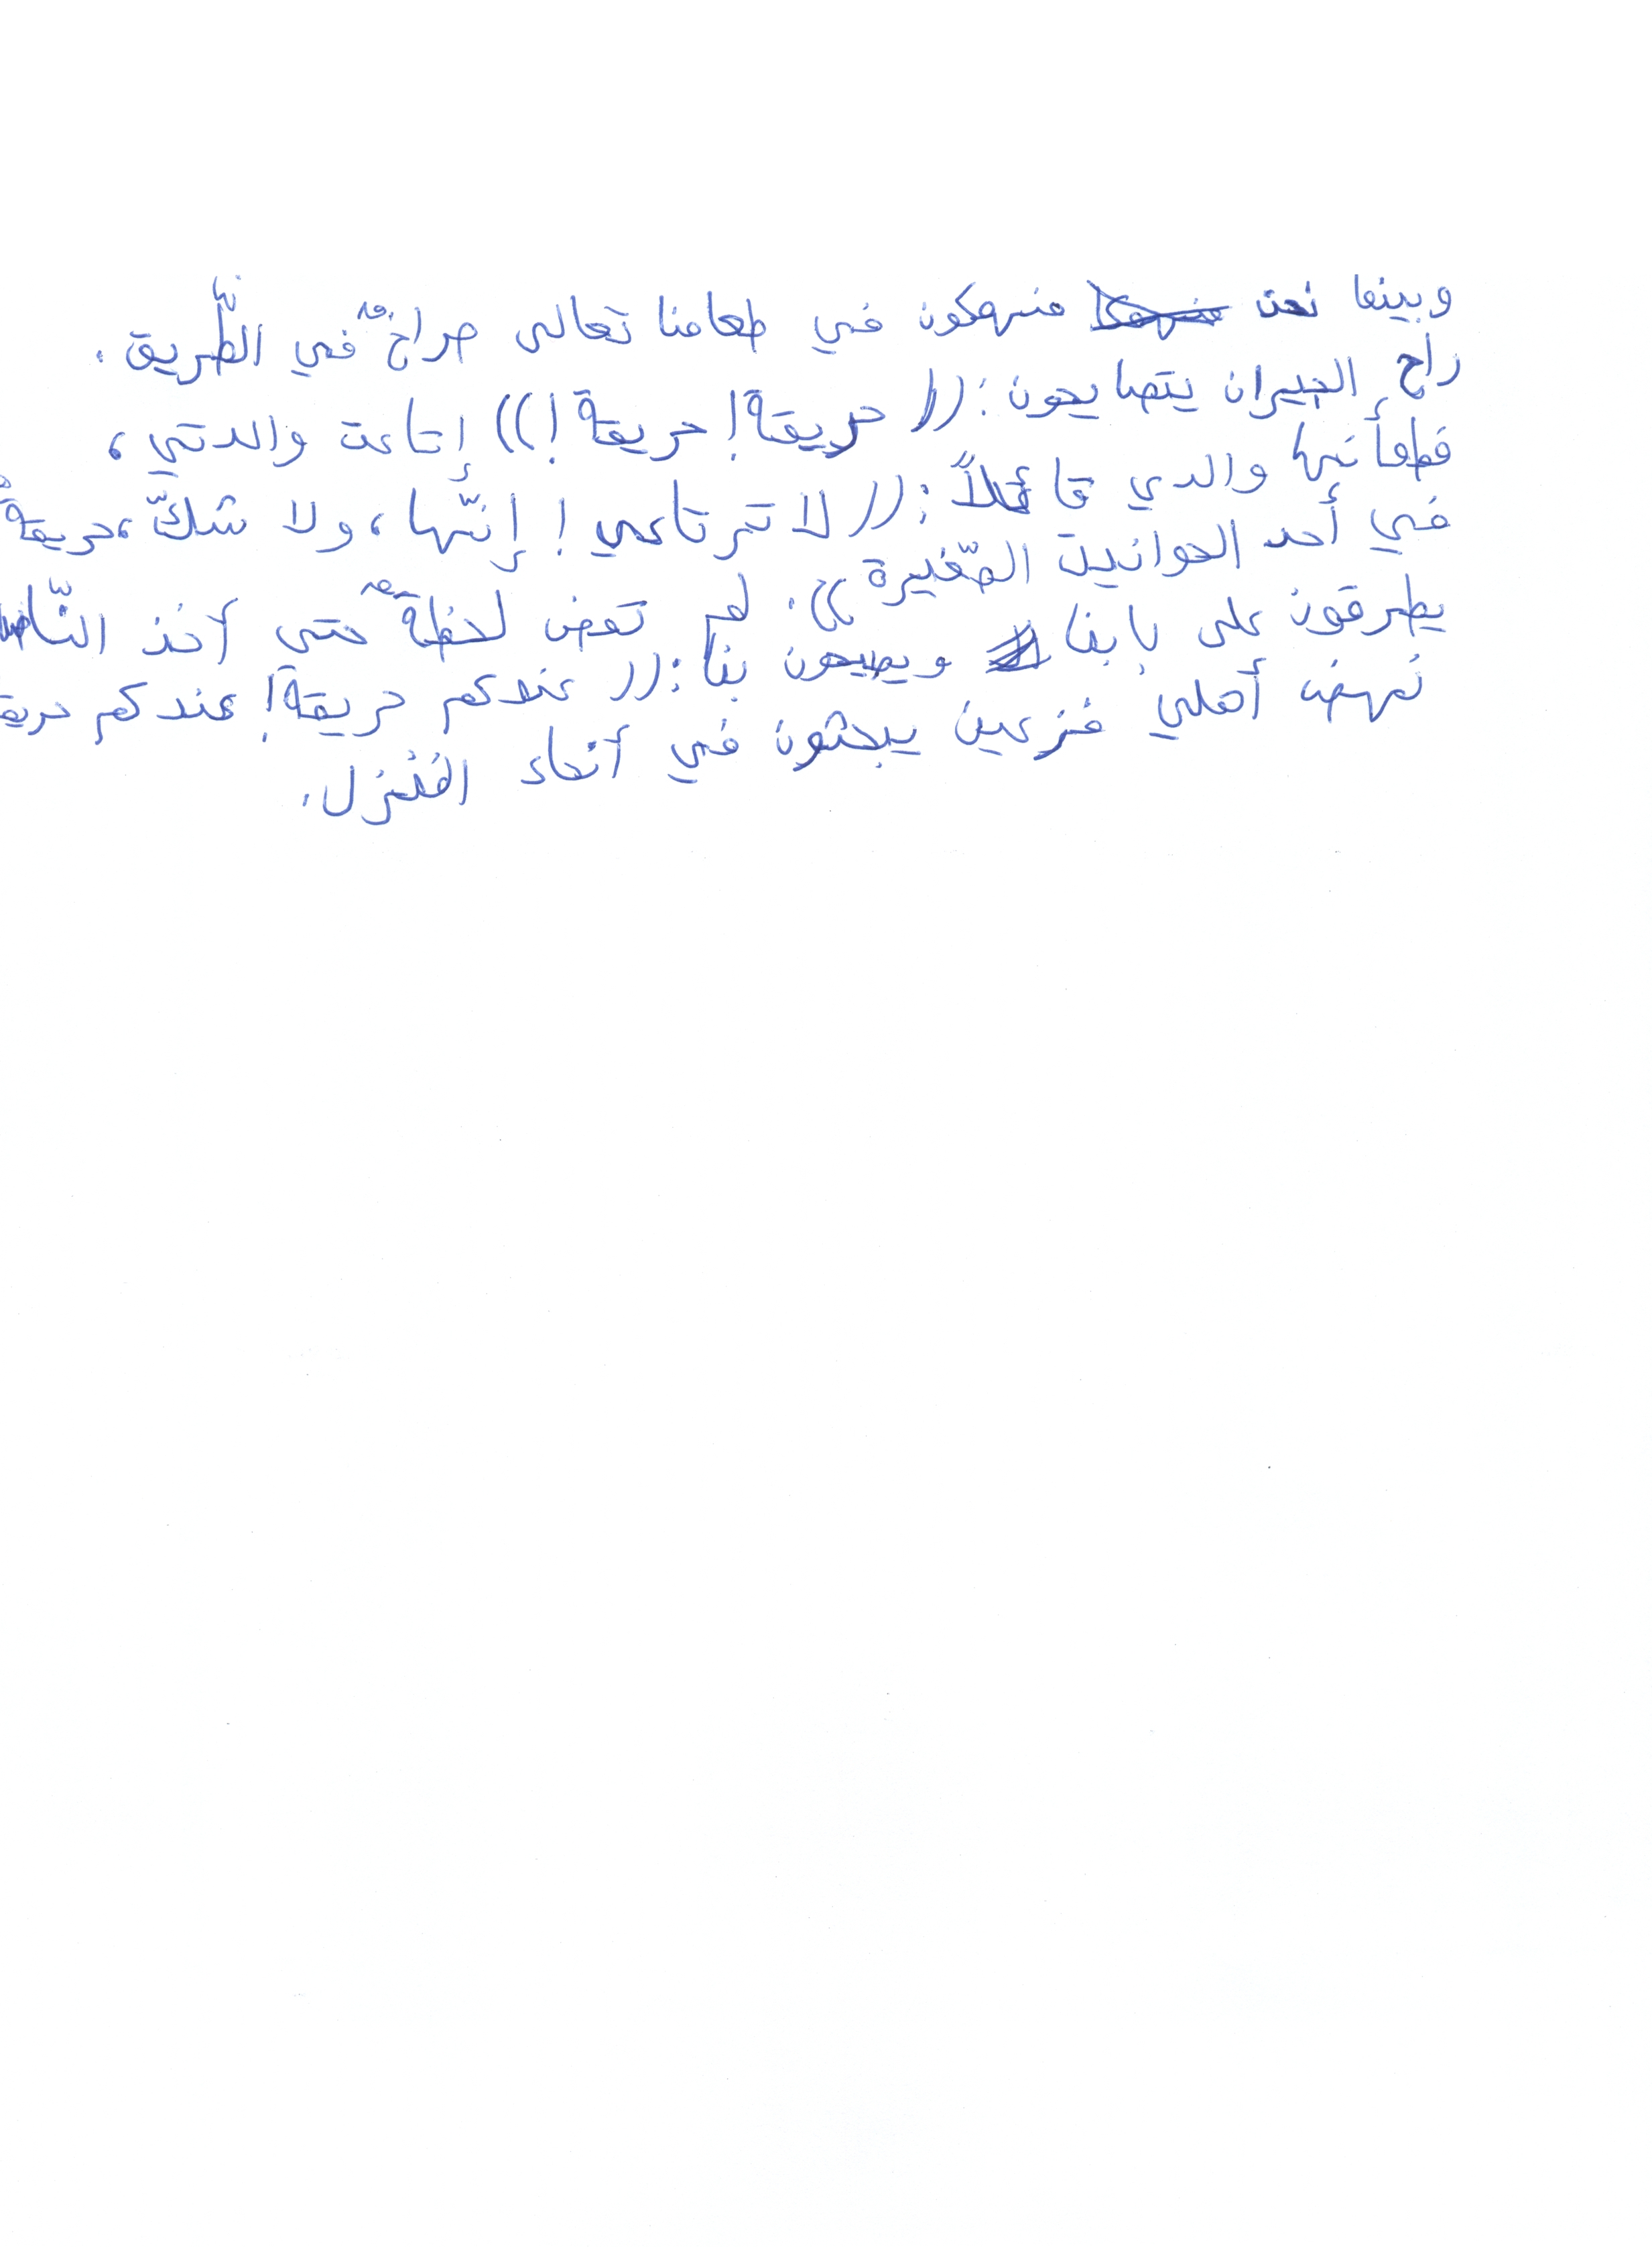 وبينما نحن منهمكون في طعامنا تعالى صراخٌ في الطّريق.
راح الجيران يتصايحون: ((حريقة! حريقة!)) إتاعت والدتي،
فطمأنها والدي قائلاً: ((لا ترتاعي! إنّها، ولا شكّ، حريقةٌ
في أحد الحوانيت الصّغيرة)). لم تمض لحظةٌ حتى أخذ النّاس
يطرقون على بابنا ويصيحون بنا: ((عندكم حريقة! عندكم
نهض أهلي فزعين يبحثون في أنحاء المنزل.